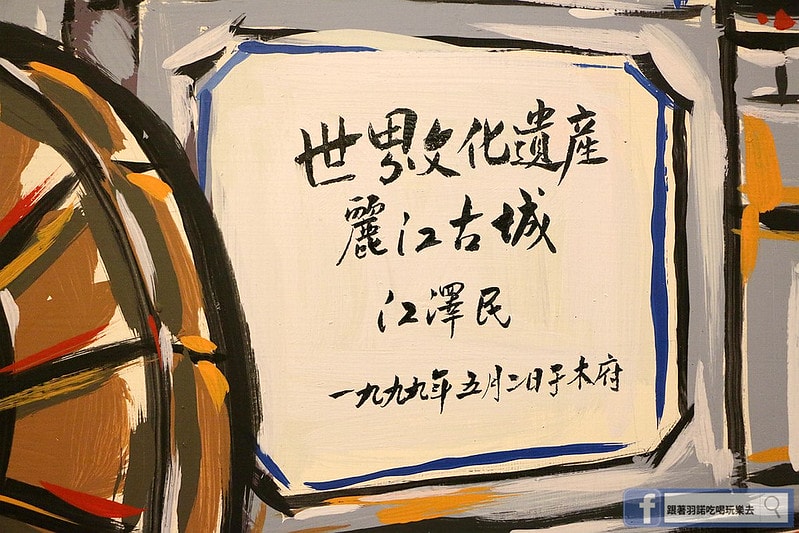 世界文化遺産
麗江古城
江澤民
一九九九年五月二日于木府
跟著羽諾吃喝玩樂去